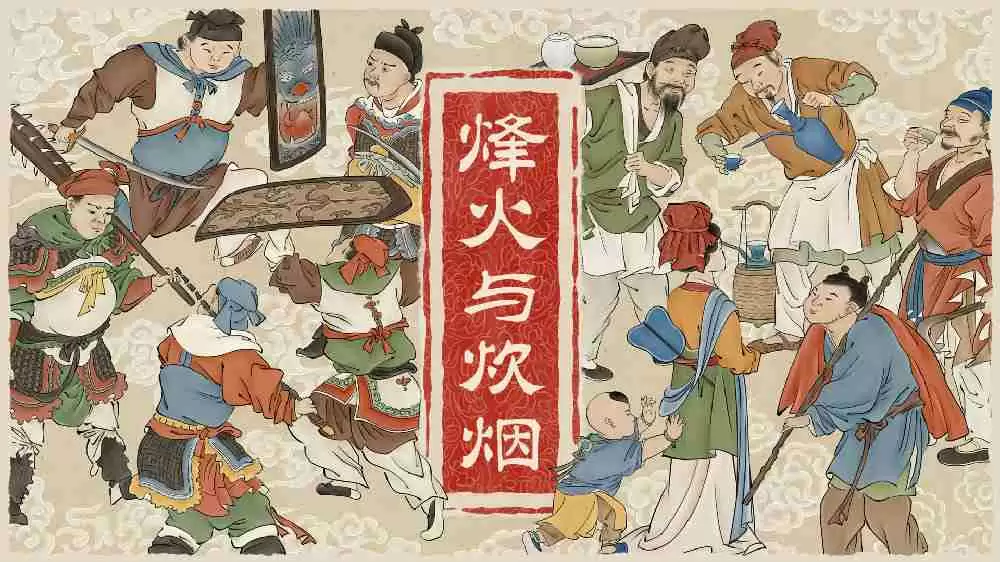 烽火与炊烟